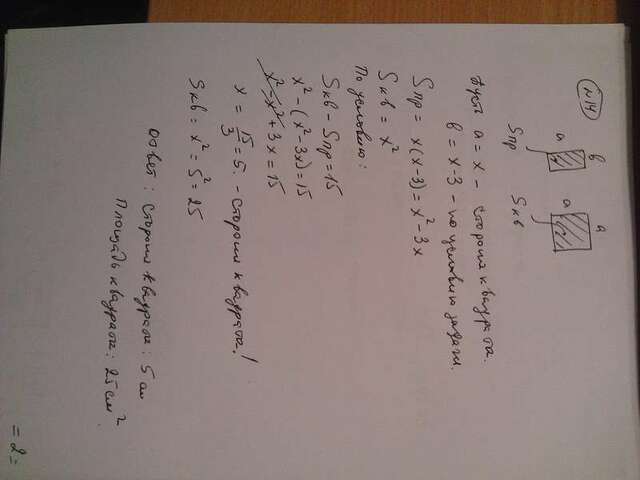 №14
Sпр Sкв
a в a a
Пусть a = x - сторона квадрата.
в = x - 3 - по условию задачи.
Sпр = x(x-3) = x² - 3x
Sкв = x²
По условию:
Sкв - Sпр = 15
x² - (x² - 3x) = 15
x² - x² + 3x = 15
x = 15/3 = 5. - сторона квадрата!
Sкв = x² = 5² = 25
Ответ: Сторона квадрата: 5 см
Площадь квадрата: 25 см².
= 2 =